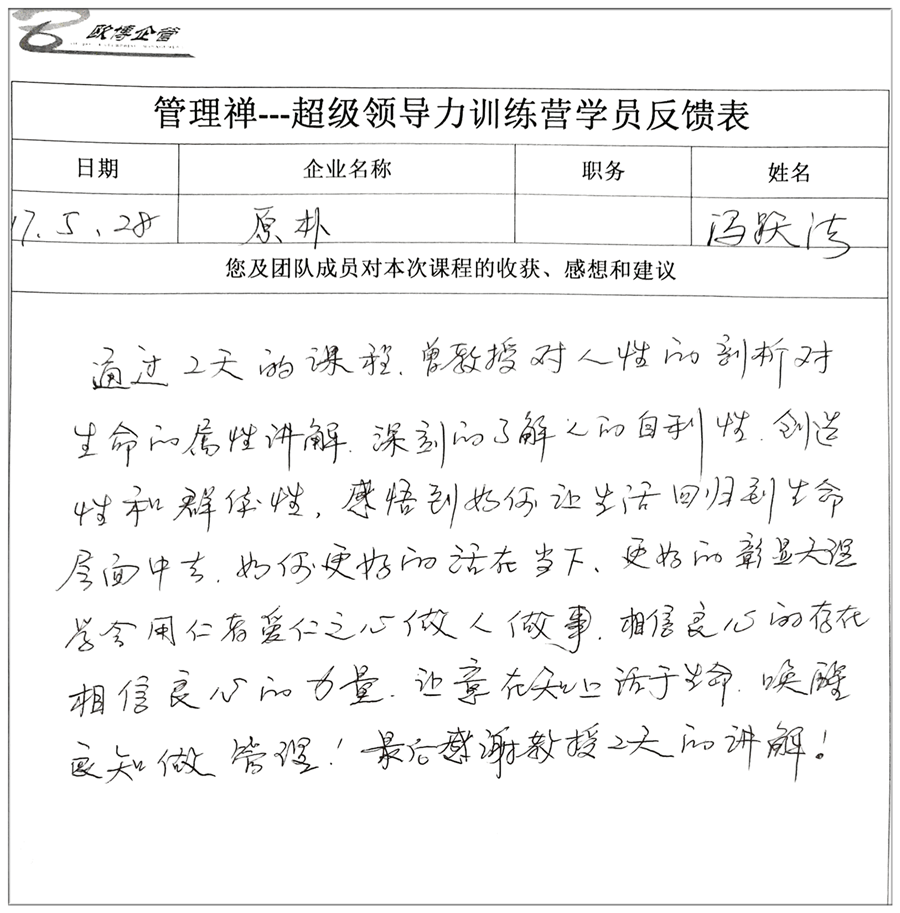 欧博企管
管理禅---超级领导力训练营学员反馈表
日期 企业名称 职务 姓名
17.5.28 原朴 冯跃法
您及团队成员对本次课程的收获、感想和建议
通过2天的课程.曾教授对人性的剖析对
生命的属性讲解.深刻的了解人的自利性.创造
性和群体性,感悟到如何让生活回归到生命
层面中去.如何更好的活在当下、更好的彰显天理
学会用仁者爱仁之心做人做事.相信良心的存在
相信良心的力量.让 在 上活于生命.唤醒
良知做管理!最后感谢教授2天的讲解!